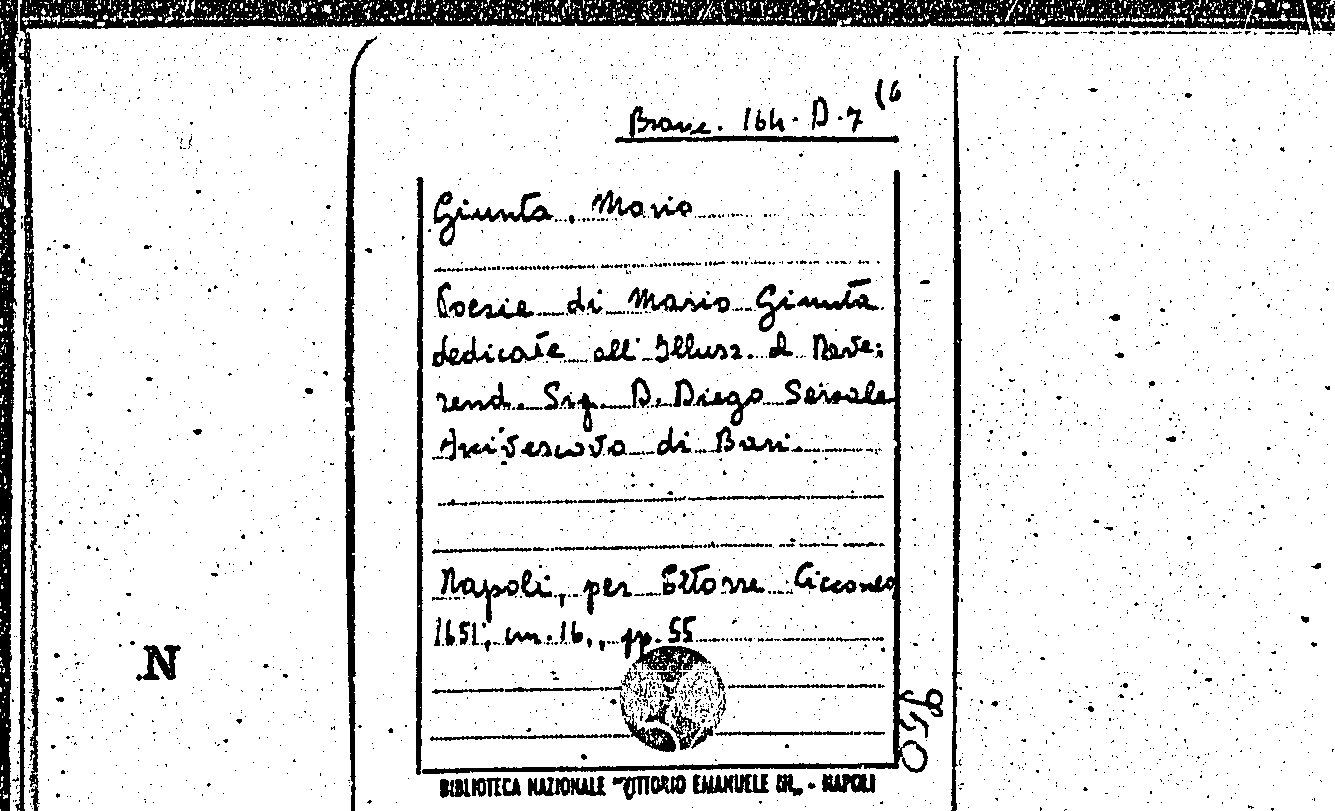 Branc. 164. D. 7 (6
Giunta, Mario
Poesie di Mario Giunta
dedicate all' Illusz. et Reve:
rend. Sig. D. Diego Sersale
Arcivescovo di Bari.
Napoli, per Ettorre Cicconeo
1651; cm. 16., pp. 55
N
950
BIBLIOTECA NAZIONALE "VITTORIO EMANUELE III„ - NAPOLI